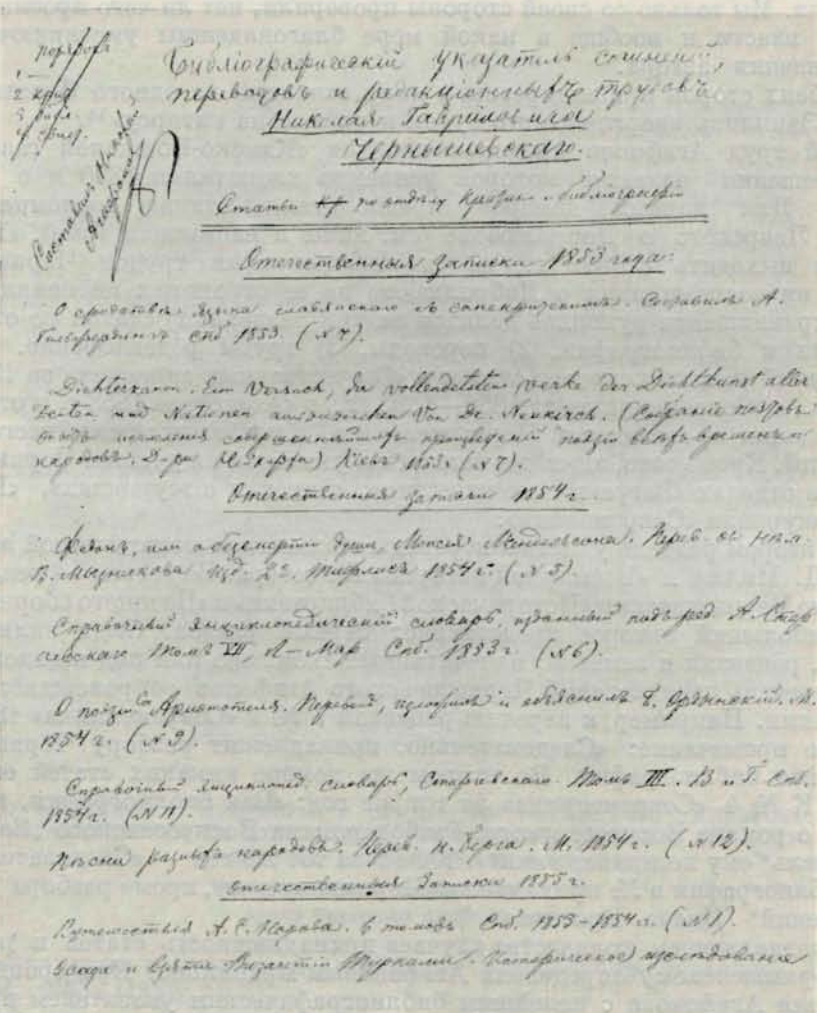 Порядок
1 —
2 крит
3 библ
4 
Составилъ Николай
Агафоновъ
Библіографическій указатель сочиненій,
переводовъ и редакціонныхъ трудовъ
Николая Гавриловича
Чернышевскаго.
Статьи по отделу Критики и библиографіи
Отечественныя Записки 1853 года.
О сродстве языка славянскаго съ санскритскимъ. Составилъ А.
Гильфердингъ Спб 1853. (№ 7).
Dichterkanon. Ein Versuch, die vollendetsten Werke der Dichtkunst aller
Zeiten und Nationen auszuzeichnen Von Dr. Neukirch. (Собраніе поэтовъ
совершеннѣйшихъ произведеній поэзіи всѣхъ временъ и
народовъ. Д-ра Нейкирха) Кіевъ 1853. (№ 7).
Отечественныя записки 1854 г.
Федонъ, или о безсмертіи души, Моисея Мендельсона. Перев. съ нѣм.
В. Мызникова Изд. 2е. Тифлисъ 1854 г. (№ 5).
Справочный энциклопедическій словарь, изданный подъ ред. А. Стар
чевскаго Томъ VII, Л — Мар Спб. 1853 г. (№ 6).
О поэзіи Аристотеля. Перевелъ, изложилъ и объяснилъ Б. Ордынскій. М.
1854 г. (№ 9).
Справочный энциклопед. словарь, Старчевскаго. Томъ III. В и Г. Спб.
1854 г. (№ 11).
Пѣсни разныхъ народовъ. Перев. Н. Берга. М. 1854 г. (№ 12).
Отечественныя Записки 1855 г.
Путешествія А. С. Норова. 5 томовъ Спб. 1853–1854 г. (№ 1).
Осада и взятіе Византіи Турками. Историческое изслѣдованіе